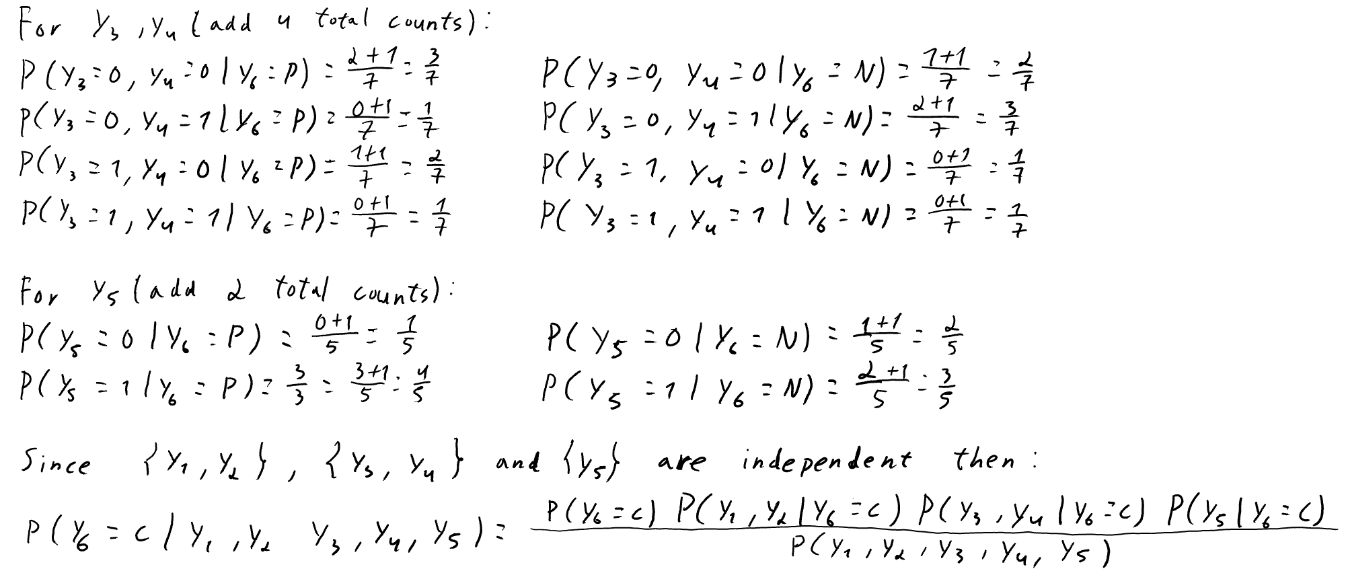 For Y₃, Y₄ (add 4 total counts):
P(Y₃=0, Y₄=0 | Y₆=P) = (2+1)/7 = 3/7    P(Y₃=0, Y₄=0 | Y₆=N) = (1+1)/7 = 2/7
P(Y₃=0, Y₄=1 | Y₆=P) = (0+1)/7 = 1/7    P(Y₃=0, Y₄=1 | Y₆=N) = (2+1)/7 = 3/7
P(Y₃=1, Y₄=0 | Y₆=P) = (1+1)/7 = 2/7    P(Y₃=1, Y₄=0 | Y₆=N) = (0+1)/7 = 1/7
P(Y₃=1, Y₄=1 | Y₆=P) = (0+1)/7 = 1/7    P(Y₃=1, Y₄=1 | Y₆=N) = (0+1)/7 = 1/7
For Y₅ (add 2 total counts):
P(Y₅=0 | Y₆=P) = (0+1)/5 = 1/5    P(Y₅=0 | Y₆=N) = (1+1)/5 = 2/5
P(Y₅=1 | Y₆=P) = 3/3 = (3+1)/5 = 4/5    P(Y₅=1 | Y₆=N) = (2+1)/5 = 3/5
Since {Y₁, Y₂}, {Y₃, Y₄} and {Y₅} are independent then:
P(Y₆=c | Y₁, Y₂ Y₃, Y₄, Y₅) = P(Y₆=c) P(Y₁, Y₂ | Y₆=c) P(Y₃, Y₄ | Y₆=c) P(Y₅ | Y₆=c) / P(Y₁, Y₂, Y₃, Y₄, Y₅)